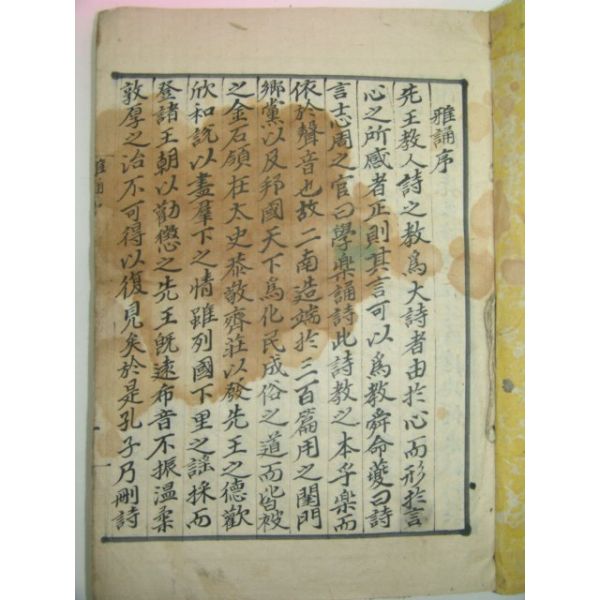 雅誦序
先王教人詩之教爲大詩者由於心而形於言
心之所感者正則其言可以爲教舜命夔曰詩
言志周之官曰學樂誦詩此詩教之本乎樂而
依於聲音也故二南造端於三百篇用之閨門
鄉黨以及邦國天下爲化民成俗之道而皆被
之金石頌在太史恭敬齊莊以發先王之德歡
欣和說以盡羣下之情雖列國下里之謠採而
登諸王朝以勸懲之先王旣遠布音不振溫柔
敦厚之治不可得以復見矣於是孔子乃刪詩
雅誦